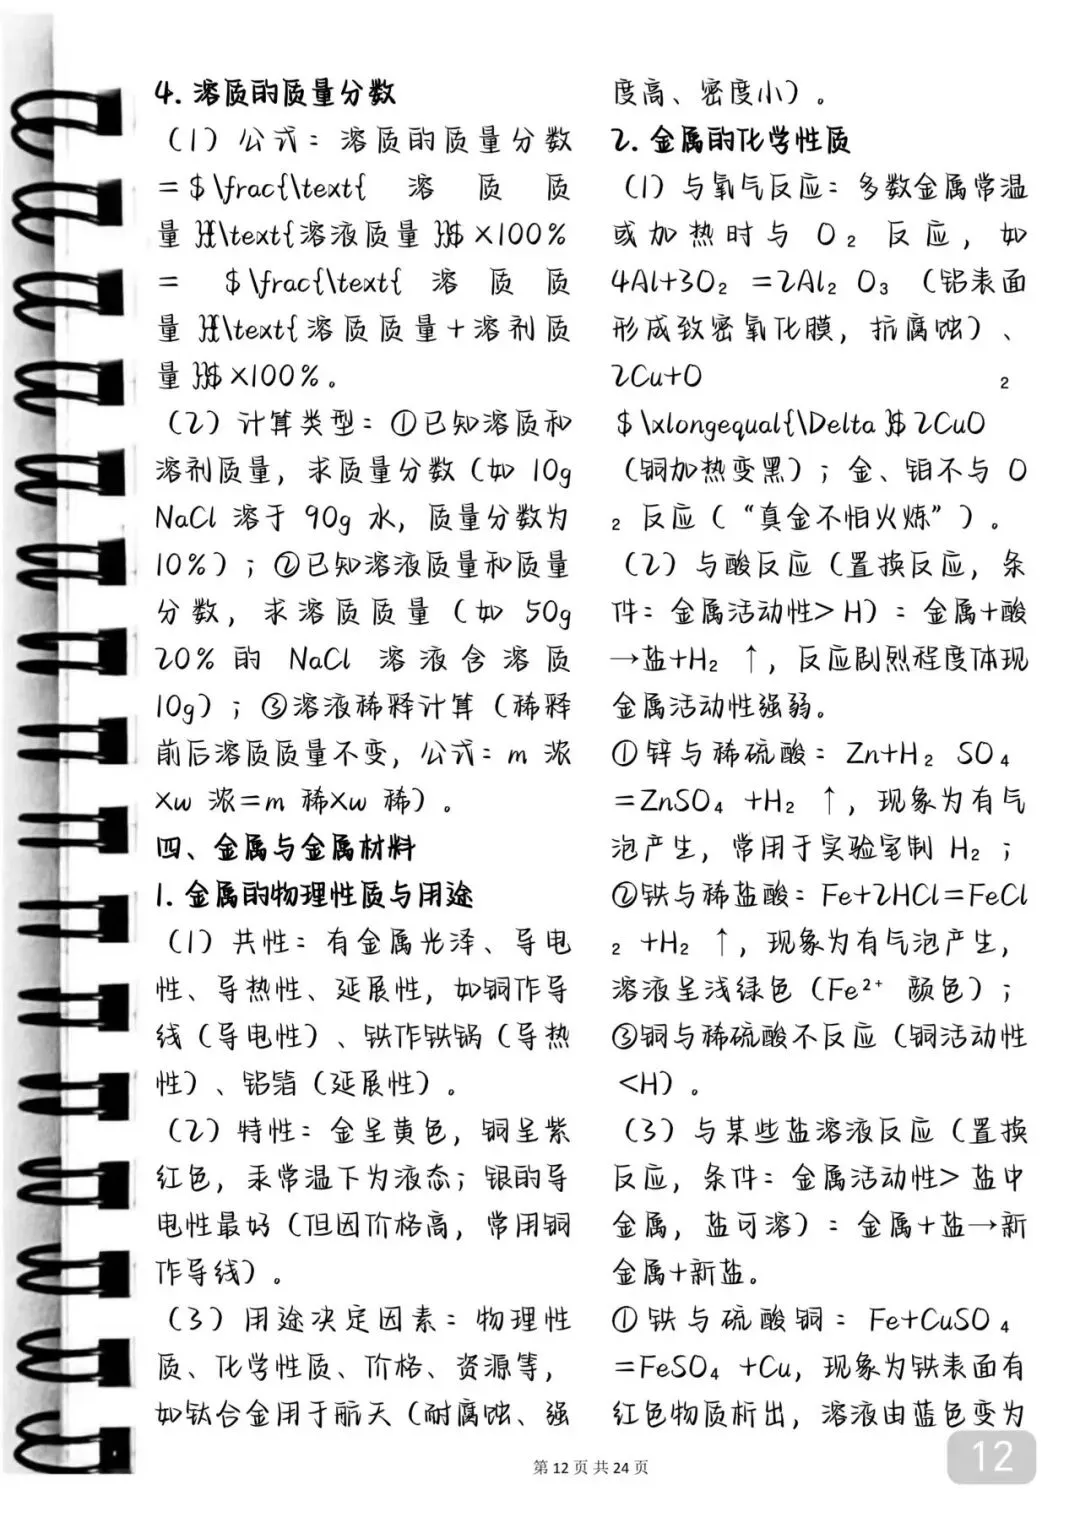 4. 溶质的质量分数
（1）公式：溶质的质量分数
=$\frac{\text{ 溶 质 质
量 }}{\text{溶液质量 }}$ ×100%
= $\frac{\text{ 溶 质 质
量 }}{\text{溶质质量＋溶剂质
量 }}$ ×100%。
（2）计算类型：①已知溶质和
溶剂质量，求质量分数（如 10g
NaCl 溶于 90g 水，质量分数为
10%）；②已知溶液质量和质量
分数，求溶质质量（如 50g
20% 的 NaCl 溶液含溶质
10g）；③溶液稀释计算（稀释
前后溶质质量不变，公式：m 浓
×w 浓=m 稀×w 稀）。
四、金属与金属材料
1. 金属的物理性质与用途
（1）共性：有金属光泽、导电
性、导热性、延展性，如铜作导
线（导电性）、铁作铁锅（导热
性）、铝箔（延展性）。
（2）特性：金呈黄色，铜呈紫
红色，汞常温下为液态；银的导
电性最好（但因价格高，常用铜
作导线）。
（3）用途决定因素：物理性
质、化学性质、价格、资源等，
如钛合金用于航天（耐腐蚀、强
度高、密度小）。
2. 金属的化学性质
（1）与氧气反应：多数金属常温
或加热时与 O₂ 反应，如
4Al+3O₂ =2Al₂ O₃ （铝表面
形成致密氧化膜，抗腐蚀）、
2Cu+O ₂
$\xlongequal{\Delta }$ 2CuO
（铜加热变黑）；金、铂不与 O
₂ 反应（“真金不怕火炼”）。
（2）与酸反应（置换反应，条
件：金属活动性> H）：金属＋酸
→盐+H₂ ↑，反应剧烈程度体现
金属活动性强弱。
①锌与稀硫酸：Zn+H₂ SO₄
=ZnSO₄ +H₂ ↑，现象为有气
泡产生，常用于实验室制 H₂；
②铁与稀盐酸：Fe+2HCl=FeCl
₂ +H₂ ↑，现象为有气泡产生，
溶液呈浅绿色（Fe²⁺ 颜色）；
③铜与稀硫酸不反应（铜活动性
<H）。
（3）与某些盐溶液反应（置换
反应，条件：金属活动性> 盐中
金属，盐可溶）：金属＋盐→新
金属＋新盐。
①铁与硫酸铜：Fe+CuSO₄
=FeSO₄ +Cu，现象为铁表面有
红色物质析出，溶液由蓝色变为
第 12 页 共 24 页
12